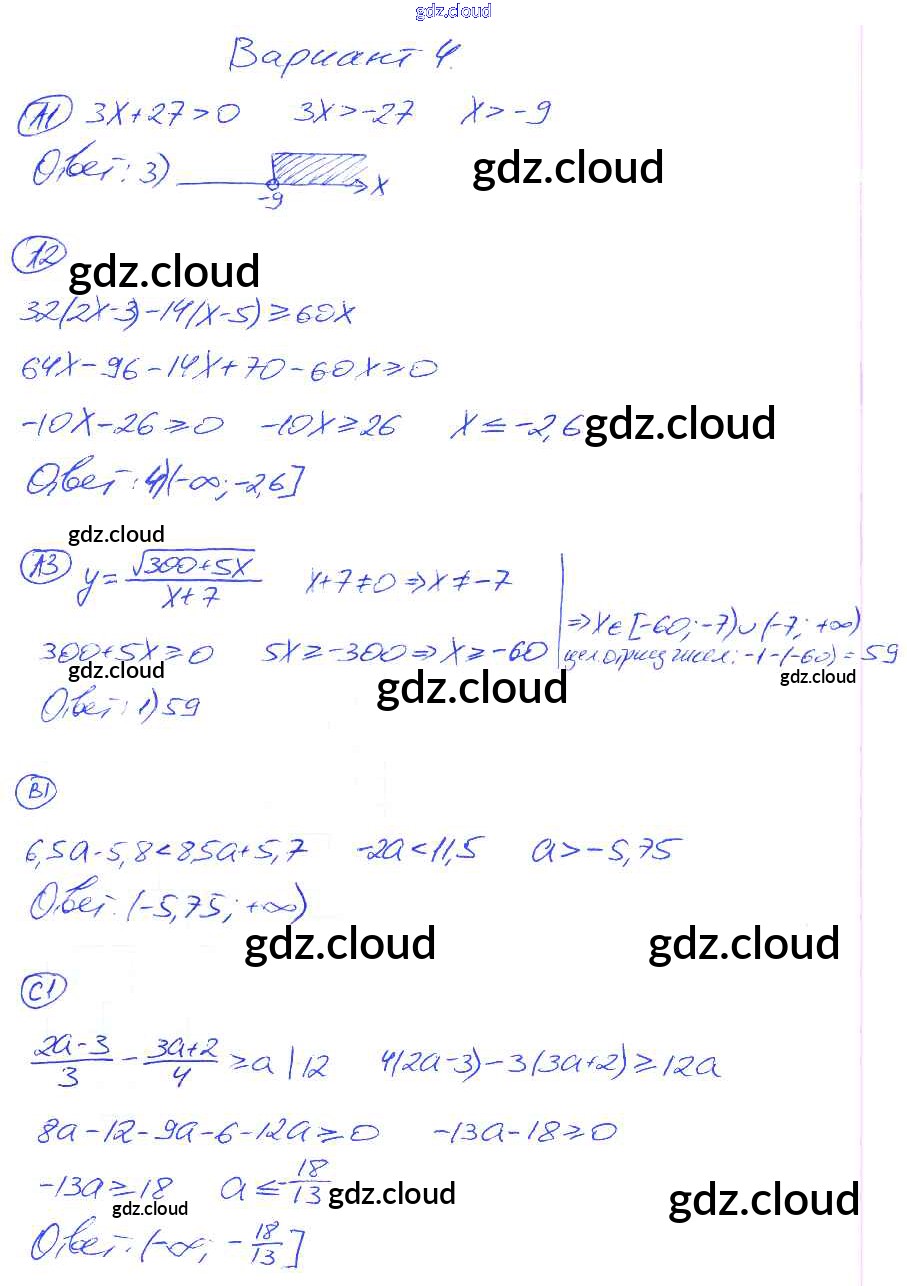 gdz.cloud
Вариант 4.
А1 3x+27>0 3x>-27 x>-9
Ответ: 3) x
gdz.cloud
-9
А2
gdz.cloud
32(2x-3)-14(x-5)≥60x
64x-96-14x+70-60x≥0
-10x-26≥0 -10x≥26 x≤-2,6
gdz.cloud
Ответ: 4)(-∞;-2,6]
gdz.cloud
А3 y=√300+5x/x+7 x+7≠0⇒x≠-7
⇒x∈[-60;-7)∪(-7;+∞)
300+5x≥0 5x≥-300⇒x≥-60 цел. отриц. чисел: -1-(-60)=59
gdz.cloud
gdz.cloud
gdz.cloud
Ответ: 1) 59
B1
6,5a-5,8<8,5a+5,7 -2a<11,5 a>-5,75
Ответ: (-5,75;+∞)
gdz.cloud
gdz.cloud
C1
2a-3/3 - 3a+2/4 ≥a|12 4(2a-3)-3(3a+2)≥12a
8a-12-9a-6-12a≥0 -13a-18≥0
-13a≥18 a≤-18/13
gdz.cloud
gdz.cloud
gdz.cloud
Ответ: (-∞; -18/13]